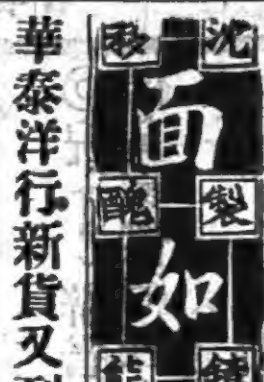 沈製
面如
醜
華泰洋行新貨又